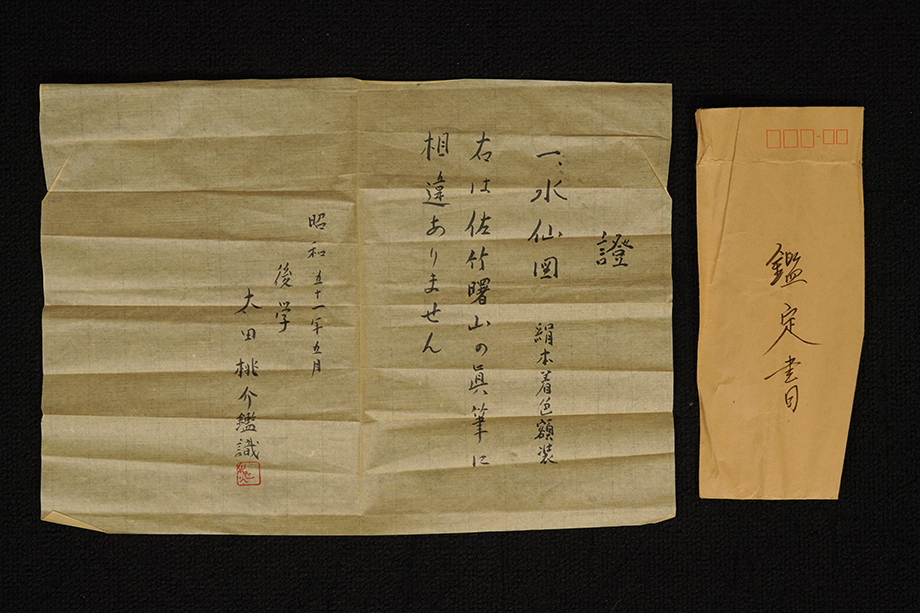 證
一、水仙図 絹本着色額装
右は佐竹曙山の眞筆に
相違ありません
昭和五十一年五月
後学
太田桃介鑑識
鑑定書